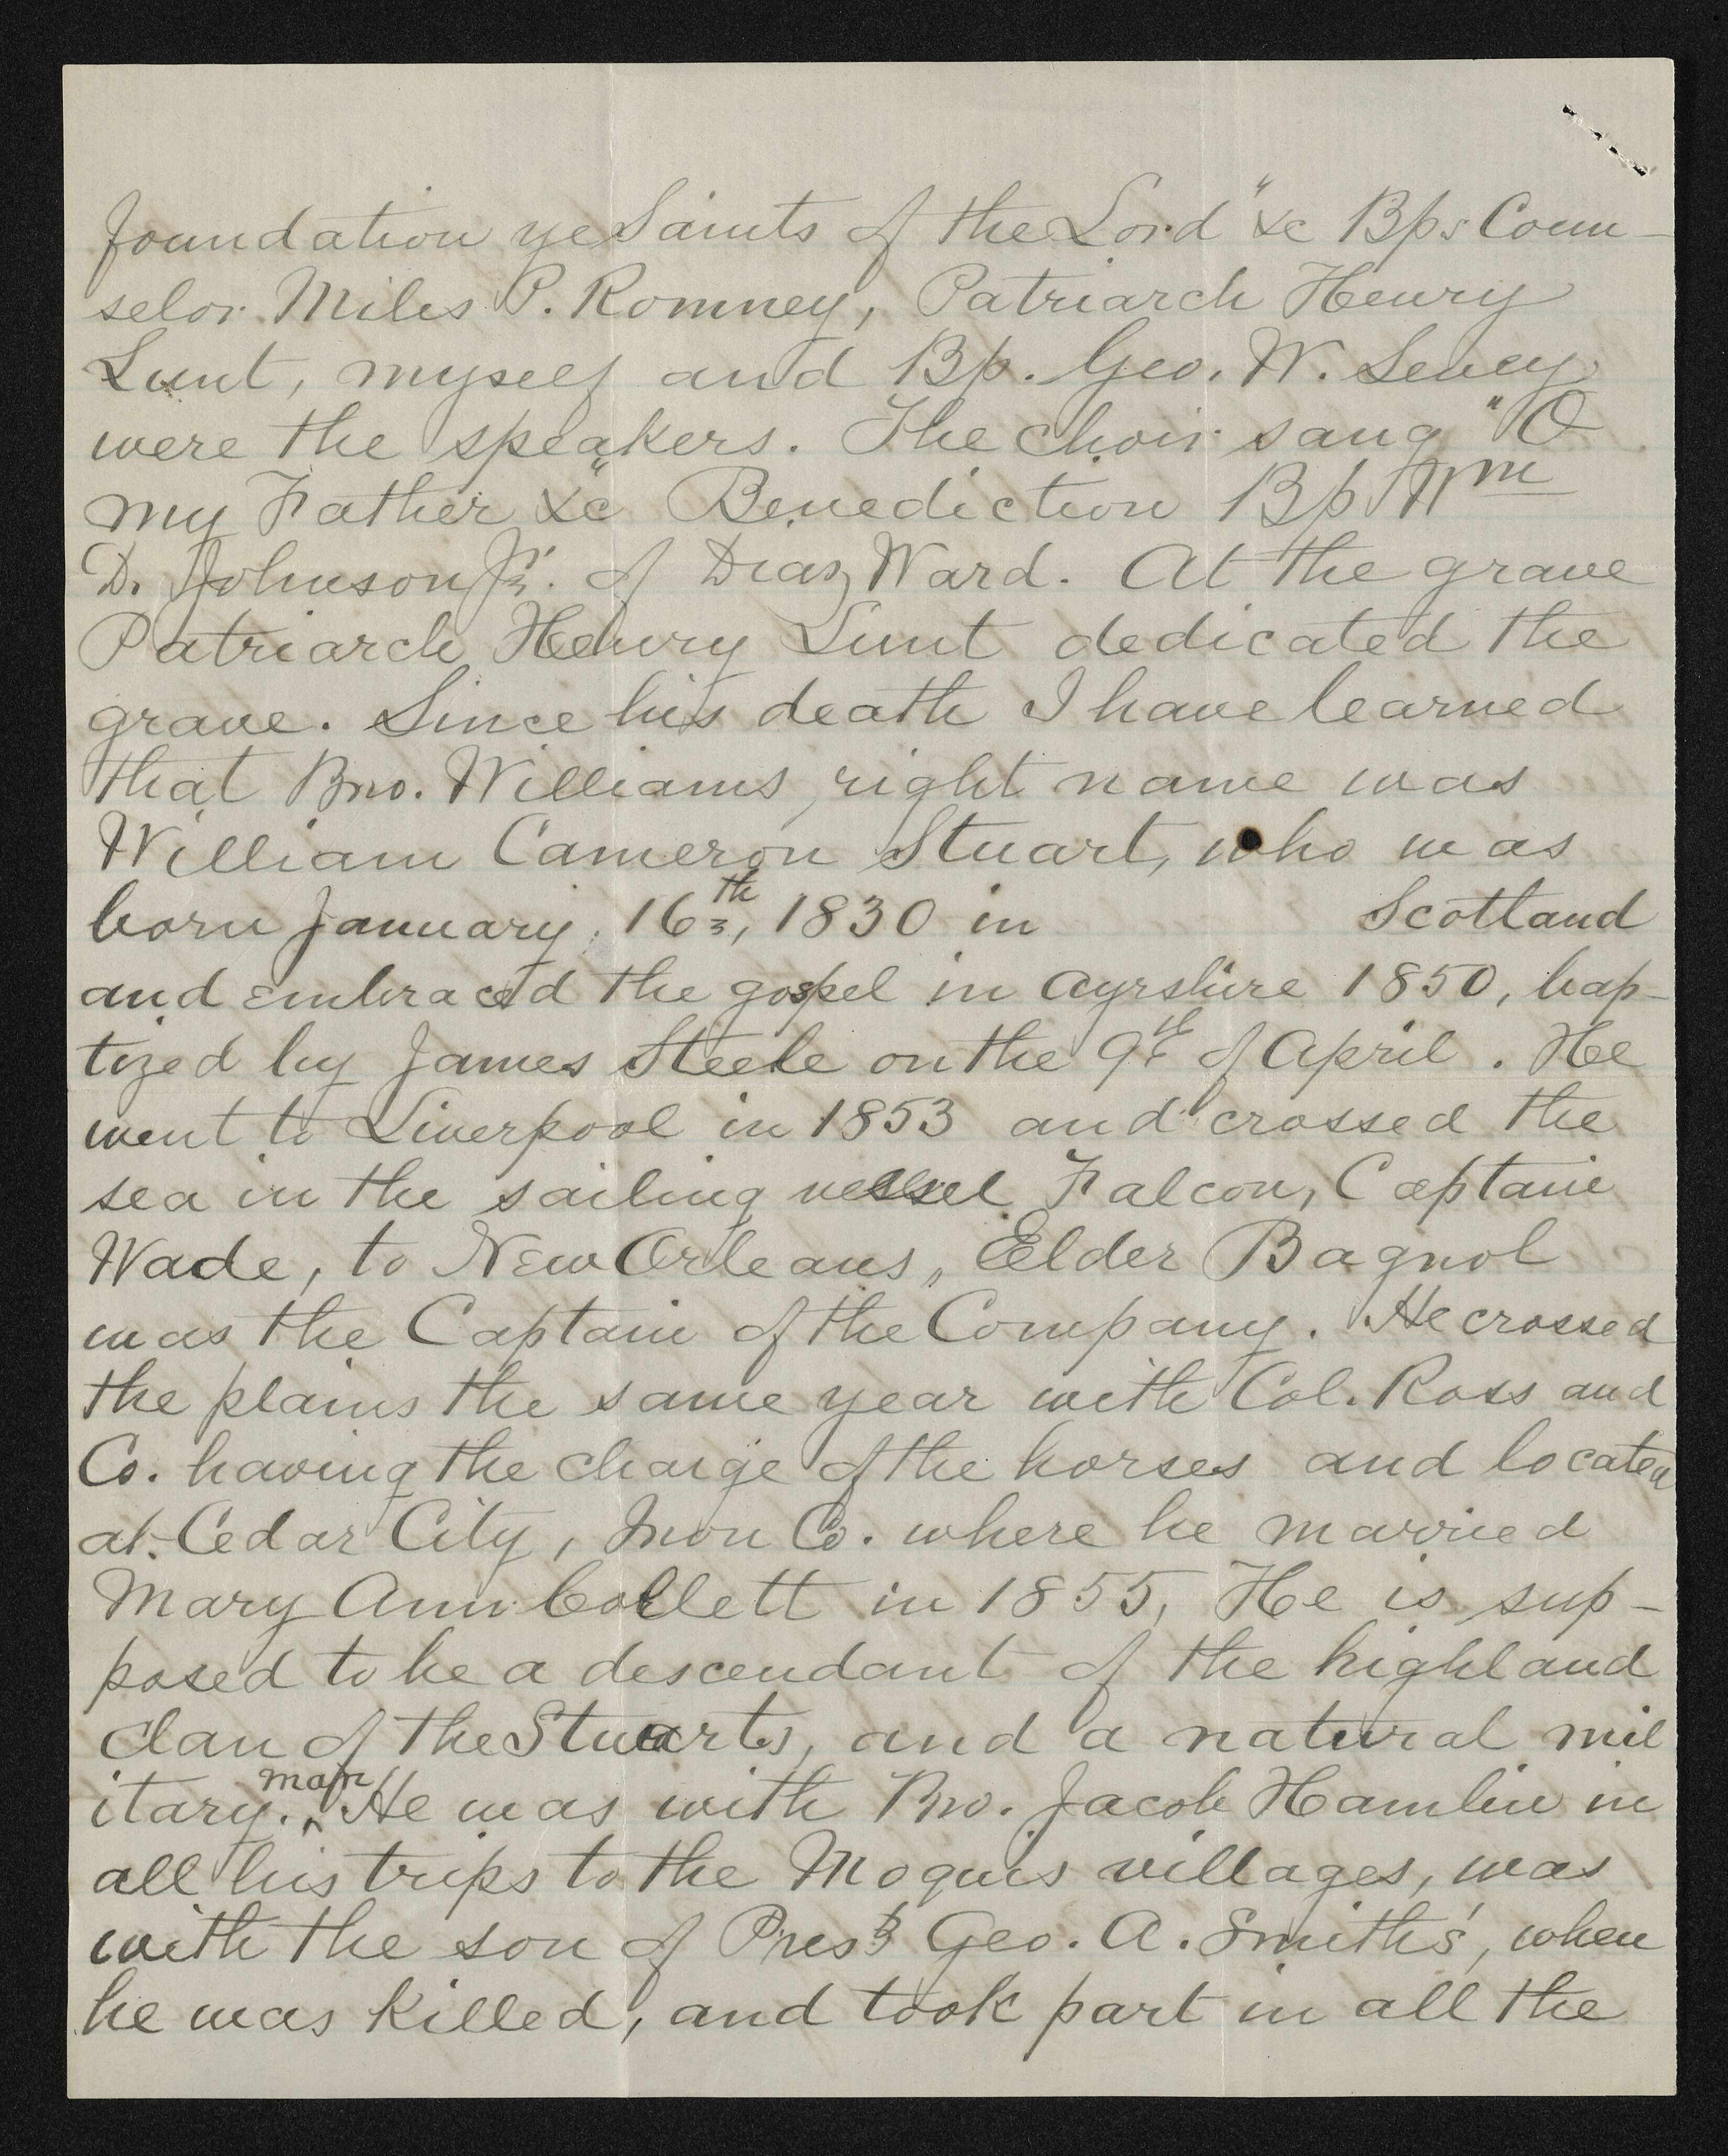 foundation ye Saints of the Lord" &c Bps Coun-
selor Miles P. Romney, Patriarch Henry
Lunt, myself and Bp. Geo. W. Sevey
were the speakers. The choir sang "O
my Father &c" Benediction Bp Wm
D. Johnson Jr. of Diaz Ward. At the grave
Patriarch Henry Lunt dedicated the
grave. Since his death I have learned
that Bro. Williams, right name was
William Cameron Stuart, who was
born January 16th, 1830 in Scotland
and embraced the gospel in Ayrshire 1850, bap-
tized by James Steele on the 9th of April. He
went to Liverpool in 1853 and crossed the
sea in the sailing vessel Falcon, Captain
Wade, to New Orleans, Elder Bagnol
was the Captain of the Company. He crossed
the plains the same year with Col. Ross and
Co. having the charge of the horses and located
at Cedar City, Iron Co. where he married
Mary Ann Corlett in 1855, He is sup-
posed to be a descendant of the highland
clan of the Stuarts, and a natural mil
itary. man He was with Bro. Jacob Hamlin in
all his trips to the Moquis villages, was
with the son of Prest Geo. A. Smith's, when
he was killed, and took part in all the